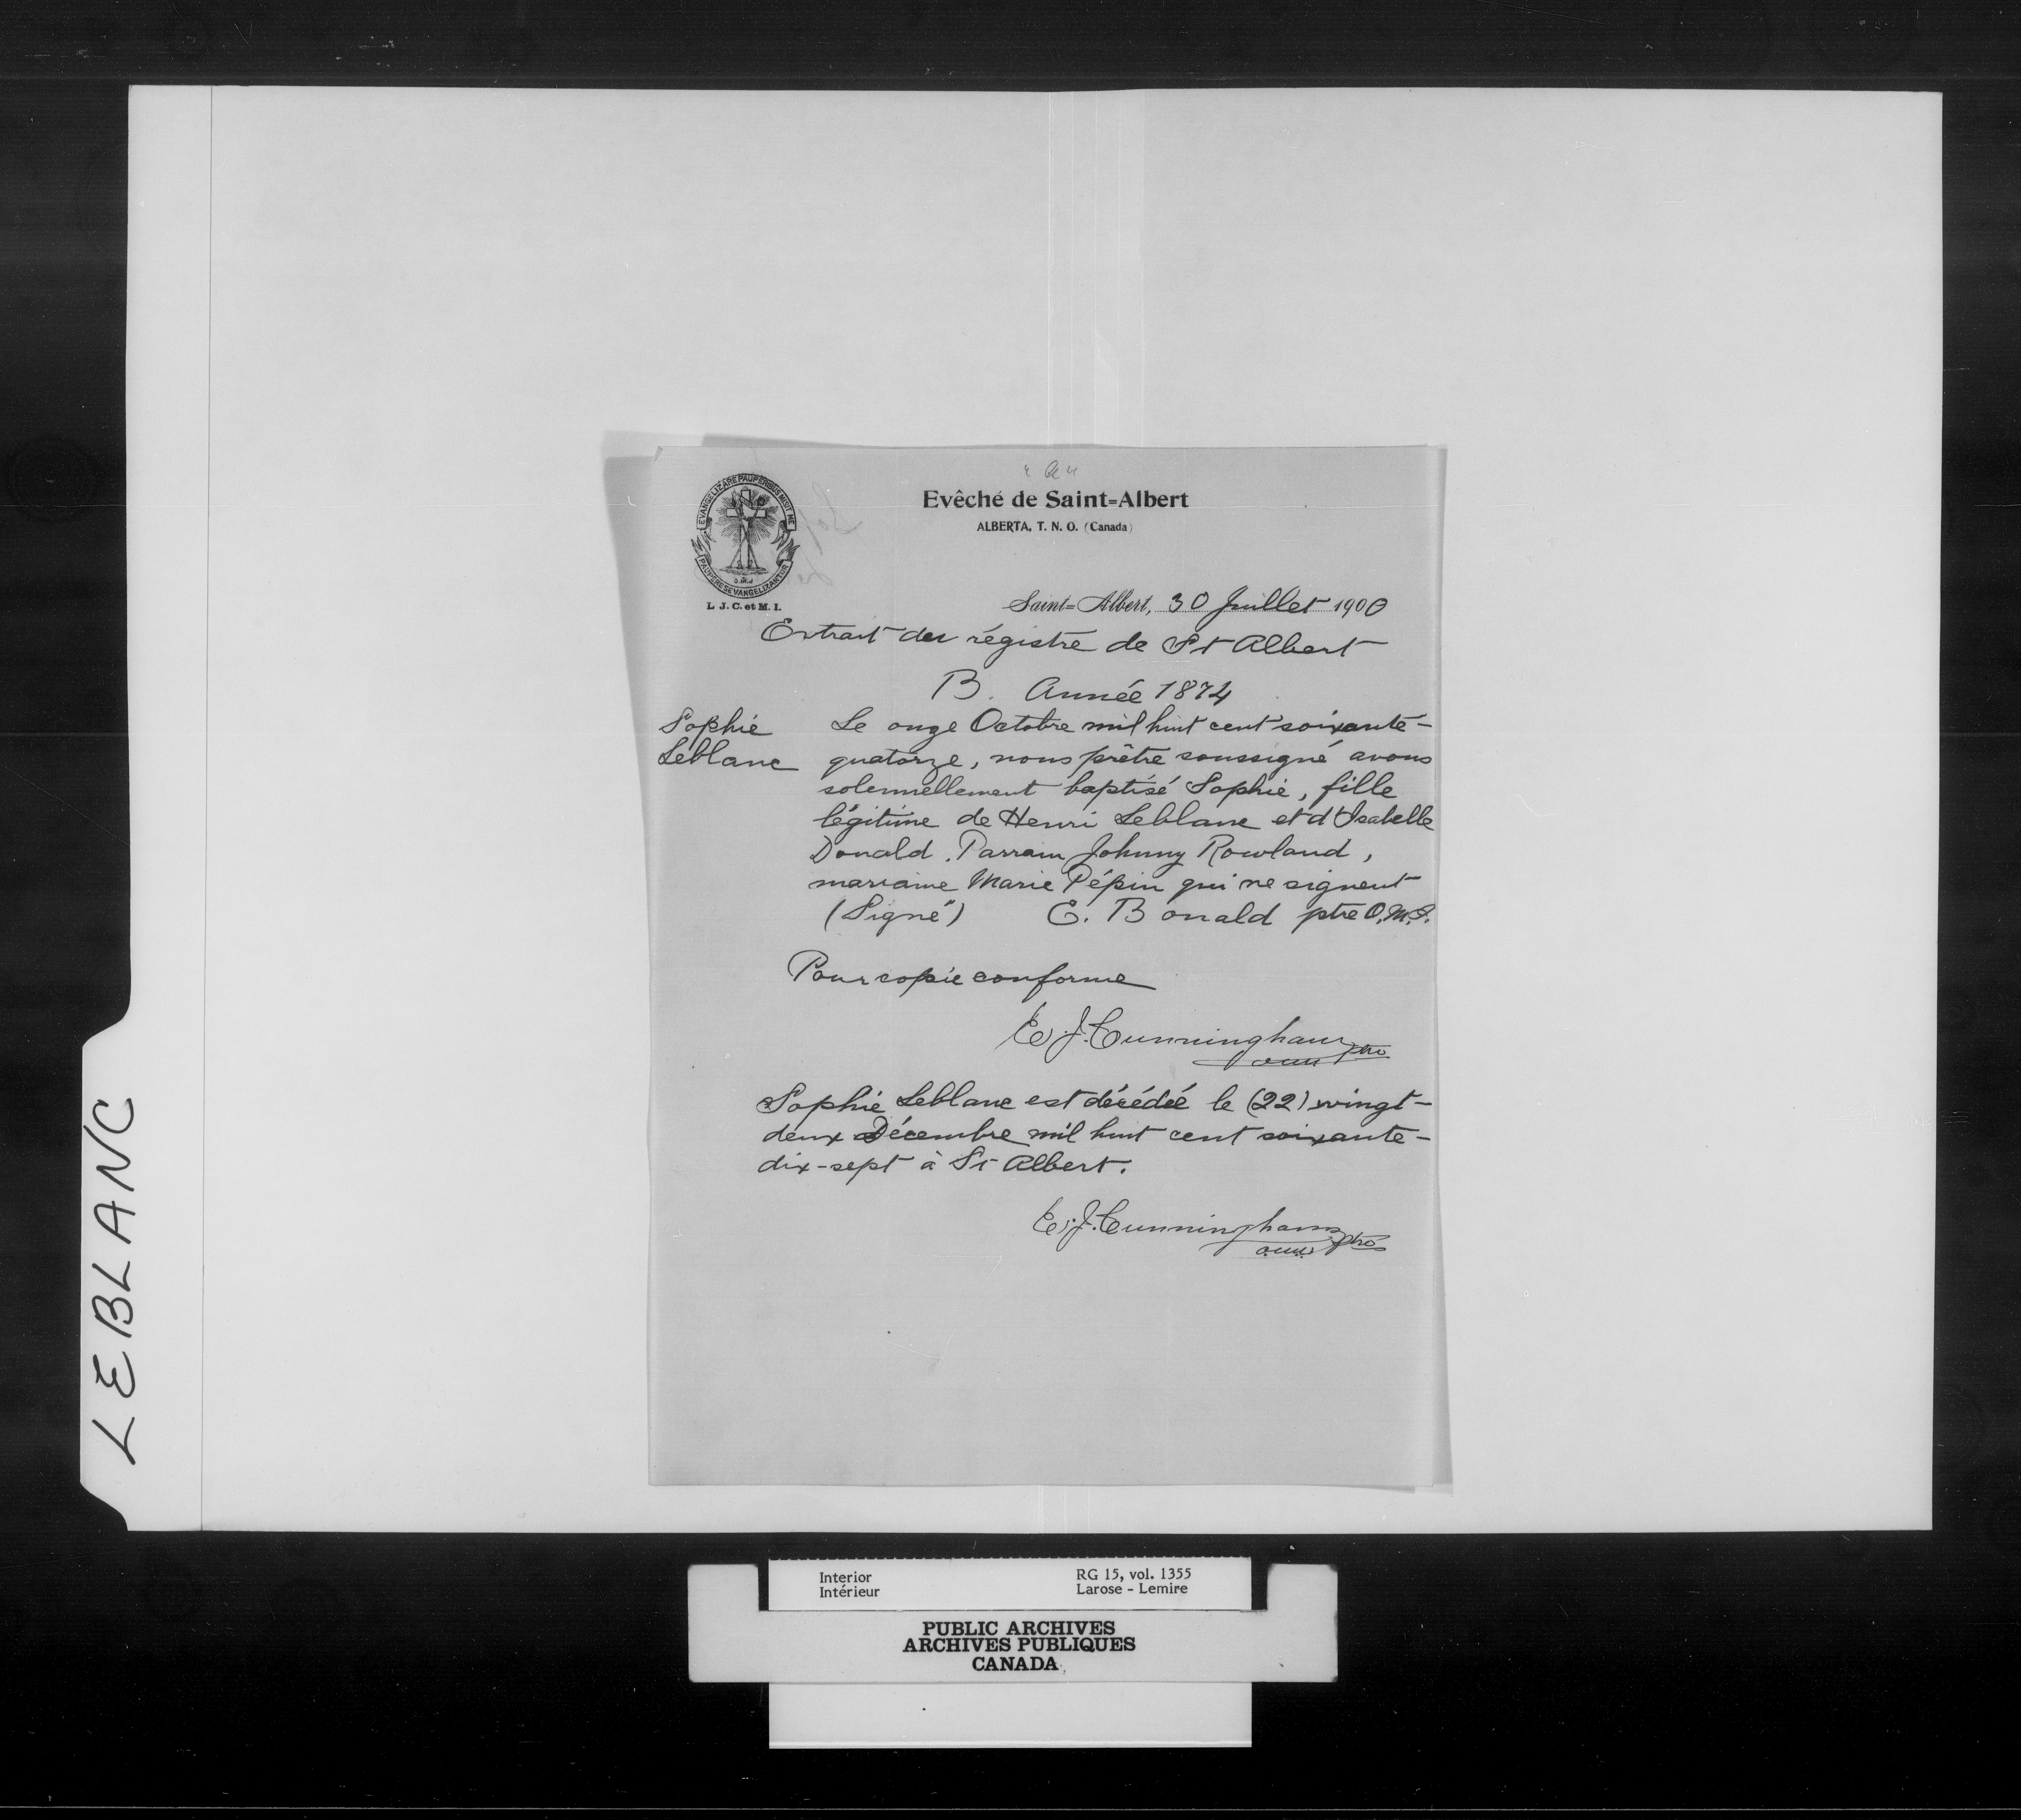 "A"
EVANGELIZARE PAUPERIBUS MISIT ME
PAUPERES EVANGELIZANTUR
O.M.I
L. J. C. et M. I.
Evêché de Saint-Albert
ALBERTA, T. N. O. (Canada)
Saint-Albert, 30 Juillet 1900
Extrait du régistre de St Albert
B. Année 1874
Sophie
Leblanc
Le onze Octobre mil huit cent soixante-
quatorze, nous prêtre soussigné avons
solennellement baptisé Sophie, fille
légitime de Henri Leblanc et d'Isabelle
Donald. Parrain Johnny Rowland,
marraine Marie Pépin qui ne signent
(Signé) E. Bonald ptre O.M.I.
Pour copie conforme
E. J. Cunningham
omi ptre
Sophie Leblanc est décédée le (22) vingt-
deux Décembre mil huit cent soixante-
dix-sept à St Albert.
E. J. Cunningham
omi ptre
LEBLANC
Interior
Intérieur
RG 15, vol. 1355
Larose - Lemire
PUBLIC ARCHIVES
ARCHIVES PUBLIQUES
CANADA